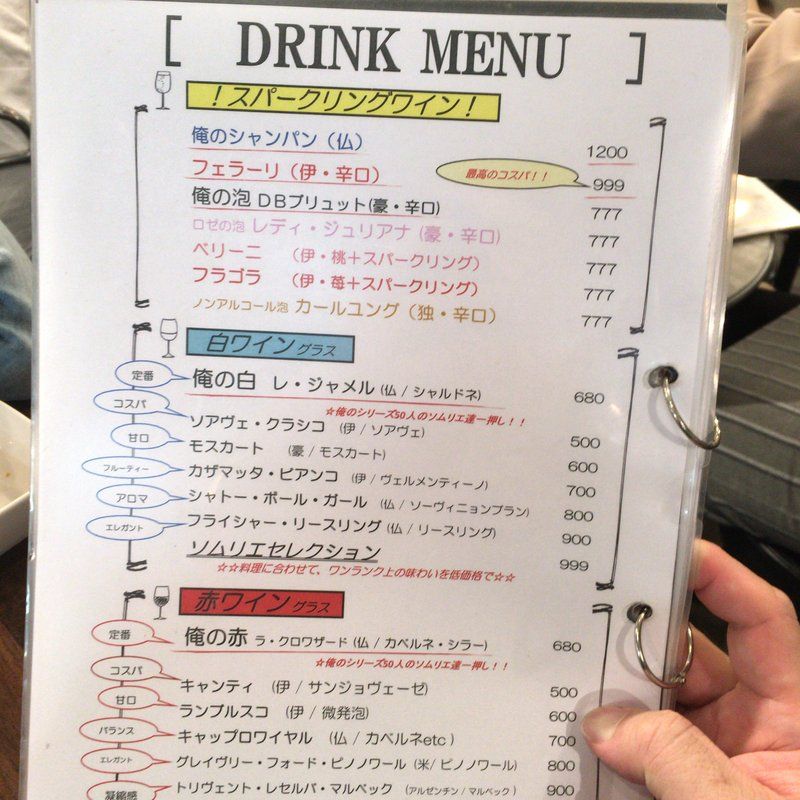 [ DRINK MENU ]
！スパークリングワイン！
俺のシャンパン（仏） 1200
フェラーリ（伊・辛口） 最高のコスパ！！ 999
俺の泡 ＤＢブリュット(豪・辛口) 777
ロゼの泡 レディ・ジュリアナ (豪・辛口) 777
ベリーニ （伊・桃＋スパークリング） 777
フラゴラ （伊・苺＋スパークリング） 777
ノンアルコール泡 カールユング（独・辛口） 777
白ワイン グラス
定番 俺の白 レ・ジャメル (仏 / シャルドネ) 680
☆俺のシリーズ50人のソムリエ達一押し！！
コスパ ソアヴェ・クラシコ （伊 / ソアヴェ） 500
甘口 モスカート （豪 / モスカート） 600
フルーティー カザマッタ・ビアンコ （伊 / ヴェルメンティーノ） 700
アロマ シャトー・ポール・ガール （仏 / ソーヴィニョンブラン） 800
エレガント フライシャー・リースリング (仏 / リースリング) 900
ソムリエセレクション 999
☆☆料理に合わせて、ワンランク上の味わいを低価格で☆☆
赤ワイン グラス
定番 俺の赤 ラ・クロワザード (仏 / カベルネ・シラー) 680
☆俺のシリーズ50人のソムリエ達一押し！！
コスパ キャンティ （伊 / サンジョヴェーゼ） 500
甘口 ランブルスコ （伊 / 微発泡） 600
バランス キャップロワイヤル （仏 / カベルネetc ） 700
エレガント グレイヴリー・フォード・ピノノワール (米/ ピノノワール) 800
凝縮感 トリヴェント・レセルバ・マルベック （アルゼンチン / マルベック ） 900